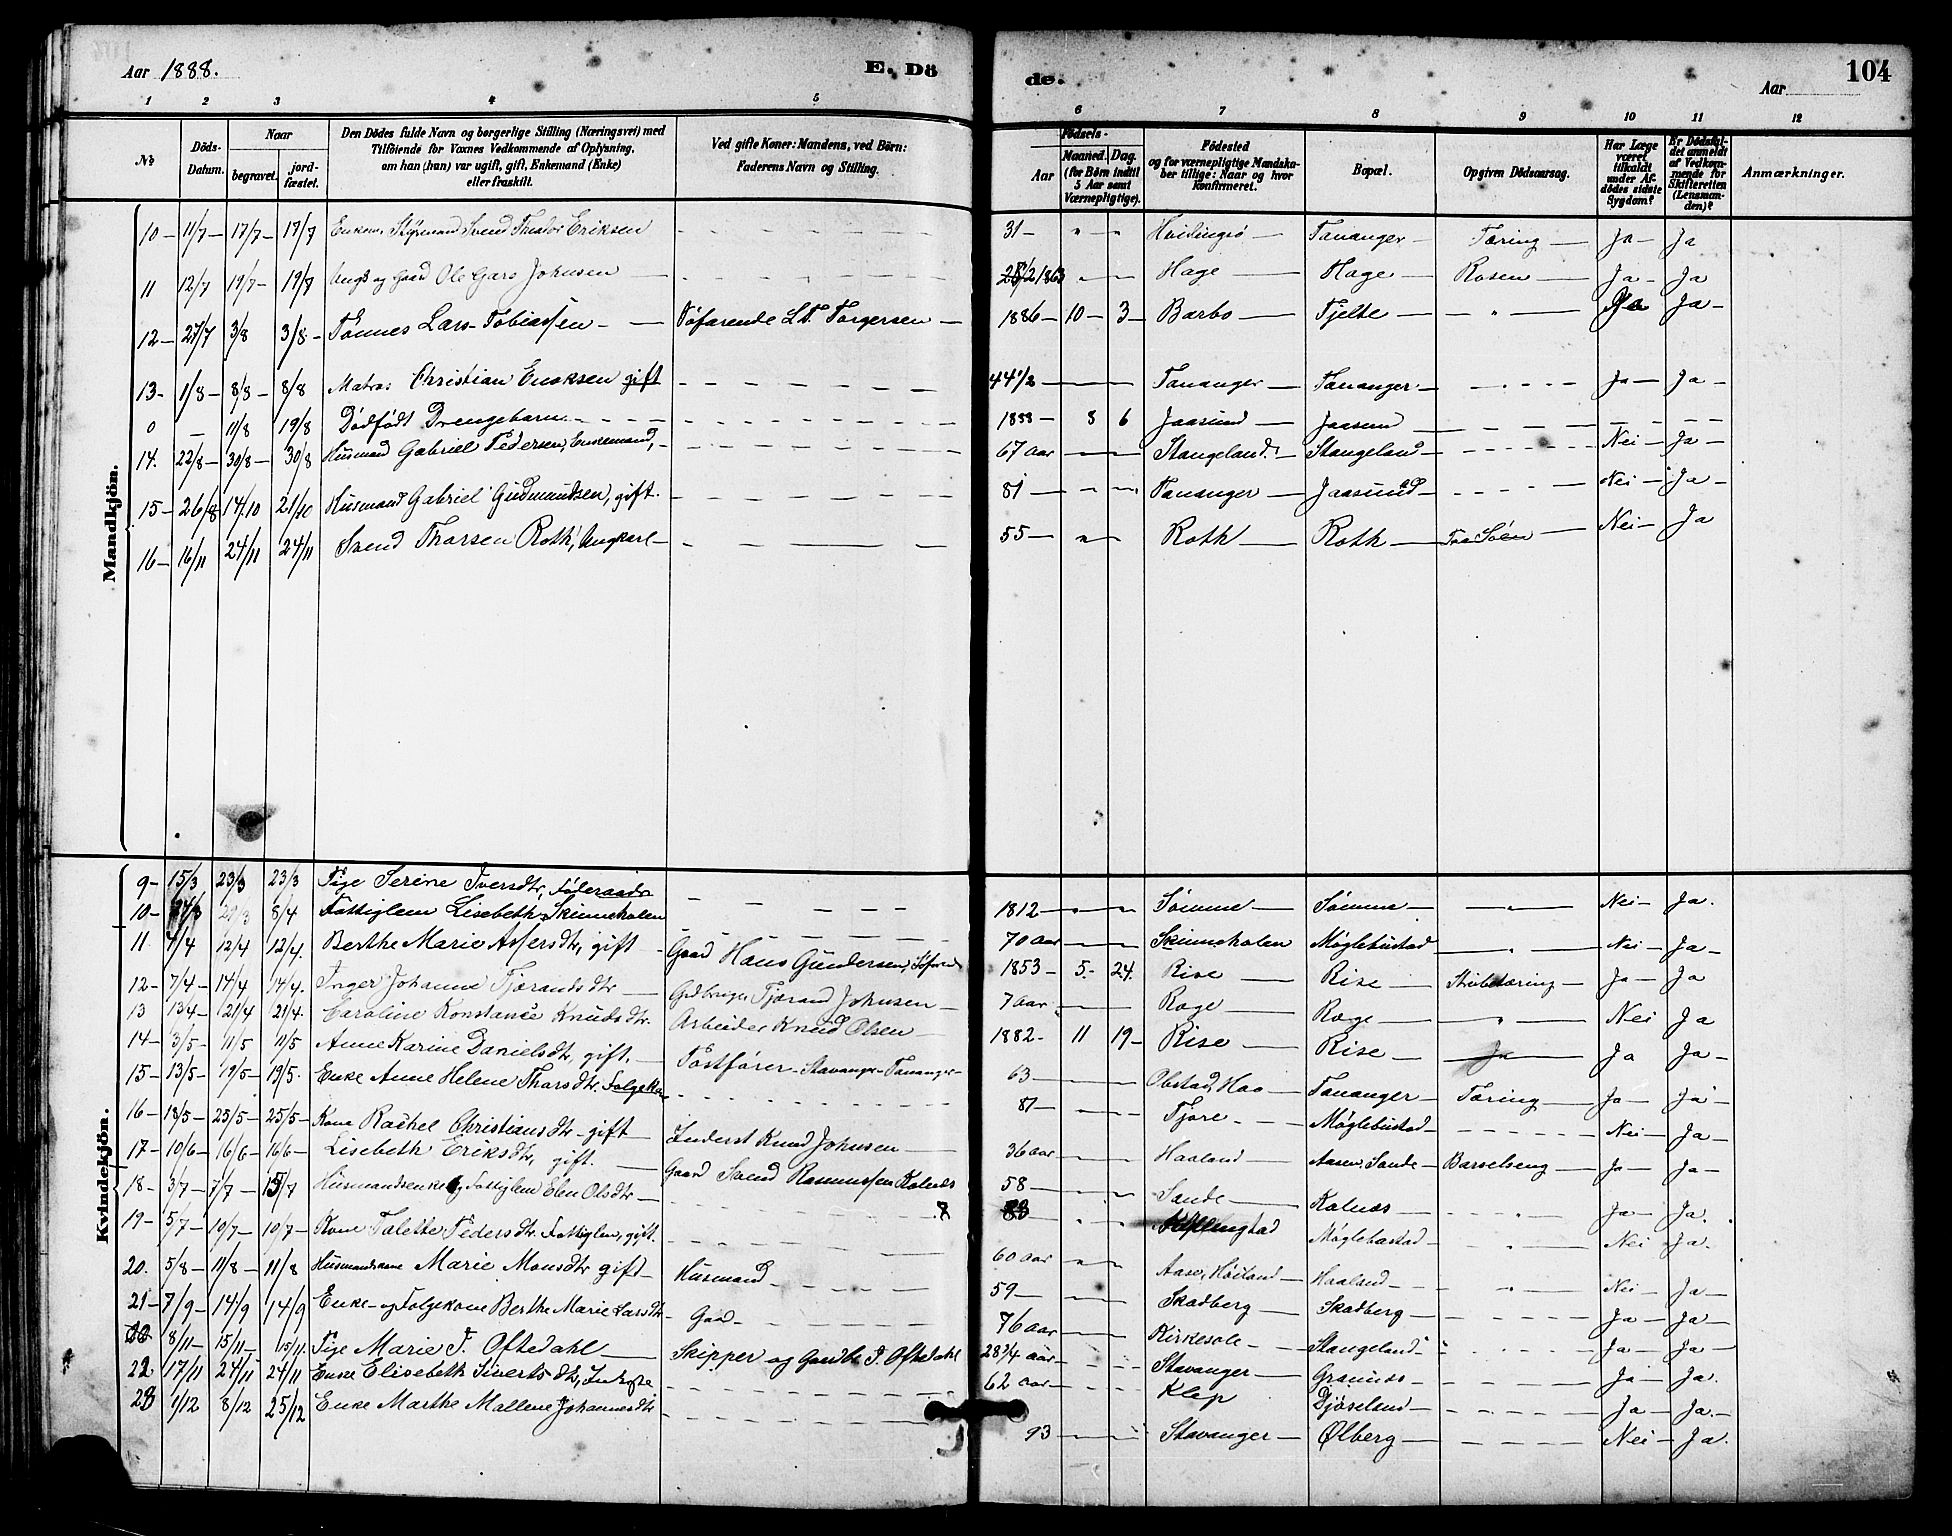 Aar 1888.
E. Dö
de.
Aar
104
1 2 3 4 5 6 7 8 9 10 11 12
No
Döds-Datum.
Naar
begravet.
jordfæstet.
Den Dödes fulde Navn og borgerlige Stilling (Næringsvei) med
Tilföiende for Voxnes Vedkommende af Oplysning,
om han (hun) var ugift, gift, Enkemand (Enke)
eller fraskilt.
Ved gifte Koner: Mandens, ved Börn:
Faderens Navn og Stilling.
Födsels-
Aar
Maaned. Dag.
(for Börn indtil
5 Aar samt
Værnepligtige).
Födested
og for værnepligtige Mandskaber tillige: Naar og hvor
konfirmeret.
Bopæl.
Opgiven Dödsaarsag.
Har Læge
været
tilkaldt
under Afdödes sidste
Sygdom?
Er Dödsfaldet anmeldt
af Vedkommende for
Skifteretten
(Lensmanden)?
Anmærkninger.
Mandkjön.
10 – 11/7 – 17/7 – 17/7 Styrmand Svend Theodor Eriksen 31 – " – " Hvidingsö – Tananger – Tæring – Ja – Ja
11 12/7 19/7 – 19/7 Ungk og Gaard Ole Gars Johnsen – 2/1863 Hage – Hage – Rosen – Ja – Ja
12 – 27/7 3/8 3/8 – Tönnes Lars Tobiassen – Söfarende L. T. Torgersen – 1886 – 10 – 3 – Barbo – Tjelte – " – Ja Ja –
13 – 1/8 – 8/8 – 8/8 Matros Christian Enoksen gift 44 1/2 – Tananger – Tananger – Ja – Ja –
0 – 11/8 19/8 Dödfödt Drengebarn 1888 – 8 6 Jaasund – Jaasund –
14. 22/8 – 30/8 – 30/8 Husmand Gabriel Pedersen, Enkemand, – 67 aar – Stangeland. – Stangeland – Nei – Ja –
15 – 26/8 14/10 21/10 Husmand Gabriel Gudmundsen, gift. 81 – Tananger – Jaasund – Nei – Ja –
16 – 16/11 24/11 24/11 Svend Thorsen Roth, Ungkarl – 55 – Roth – Roth – Nei – Ja
Kvindekjön.
9 – 15/3 23/3 23/3 Pige Serine Iversdtr, Föderaads 1812 – Sömme – Sömme – " – Nei – Ja.
10 – 8/4 Fattiglem Lisebeth Skinneholen 70 aar – Skinneholen Möglebustad – " – Nei – Ja –
11. 4/4 12/4 12/4. Berthe Marie Assersdtr, gift – Gaard Hans Gundersen, 1853 – 5 – 24. Rise – Rise – Ja – Ja
12 – 7/4 – 14/4 14/4. Inger Johanne Tjærandsdtr – Gdbruger Tjærand Johnsen – 7 aar – Roge – Roge – " – Nei Ja
13 13/4 – 21/4 21/4. Caroline Konstance Knudsdtr. Arbeider Knud Olsen 1882 – 11 19 – Rise – Rise – Ja Ja –
14 – 3/5 – 11/5 11/5 Anne Karine Danielsdtr, gift. – Postförer – Stavanger – Tananger – 63 – Obstad, Haa – Tananger – Tæring – Ja – Ja –
15 – 13/5 – 19/5 – 19/5. Enke Anne Helene Thorsdtr. Folgekone 81 – Tjore – Möglebustad – Nei – Ja –
16 – 18/5 – 25/5 – 25/5 Kone Rachel Christiansdtr – gift – Inderst Knud Johnsen – 36 aar – Haaland – Aasen, Sande – Barselseng – Ja – Ja –
17 – 10/6 – 16/6 – 16/6 – Lisebeth Eriksdtr, gift. – Gaard Svend Rasmussen Kolnes 58 – Sande – Kolnes – Ja – Ja.
18 – 3/7 – 7/7 – 15/7 Husmandsenke og Fattiglem Elen Olsdtr – Möglebustad – Nei Ja.
19 – 5/7 – 10/7 – 10/7 – Kone Talette Pedersdtr. Fattiglem, gift. 60 aar – Aase, Höiland – Haaland – Nei – Ja –
20. 5/8 – 11/8 – 11/8 Husmandskone Marie Monsdtr gift – Husmand – 59 – Skadberg – Skadberg – Ja – Ja –
21 – 7/9 – 14/9 14/9 Enke – og Folgekone Berthe Marie Larsdtr – Gaard – 76 aar – Kirkesole – Stangeland – Ja – Ja –
22 8/11 – 15/11 – 15/11. Pige Marie T. Oftedahl – Skipper og Gaardb. P. Oftedahl 28 3/4 aar – Stavanger – Grannes – Ja – Ja.
22 17/11 24/11 24/11 Enke Elisebeth Sivertsdtr, 62 aar – Klep Djöseland – Ja – Ja. –
23 1/12 8/12 25/12 Enke Marthe Mallene Johannesdtr 93 – Stavanger – Ölberg – Nei – Ja.